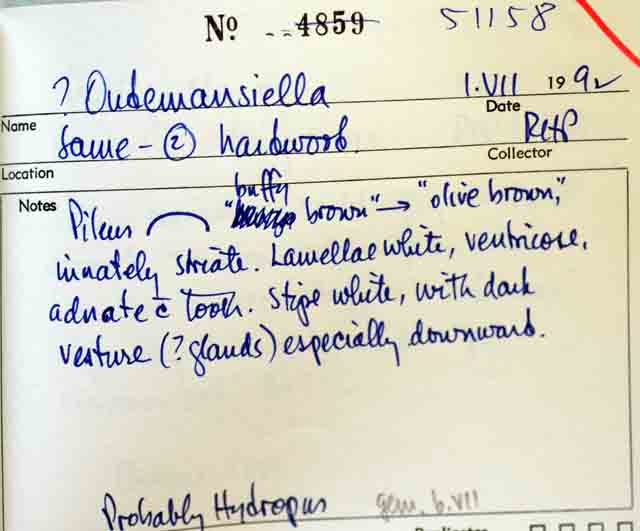 No 4859 51158
? Oudemansiella 1.VII 1992
Name Date
Same - ② hardwood. RHP
Location Collector
buffy
Notes Pileus " brown" → "olive brown,"
innately striate. Lamellae white, ventricose,
adnate c̄ tooth. Stipe white, with dark
vesture (? glands) especially downward.
Probably Hydropus gem. b.VII